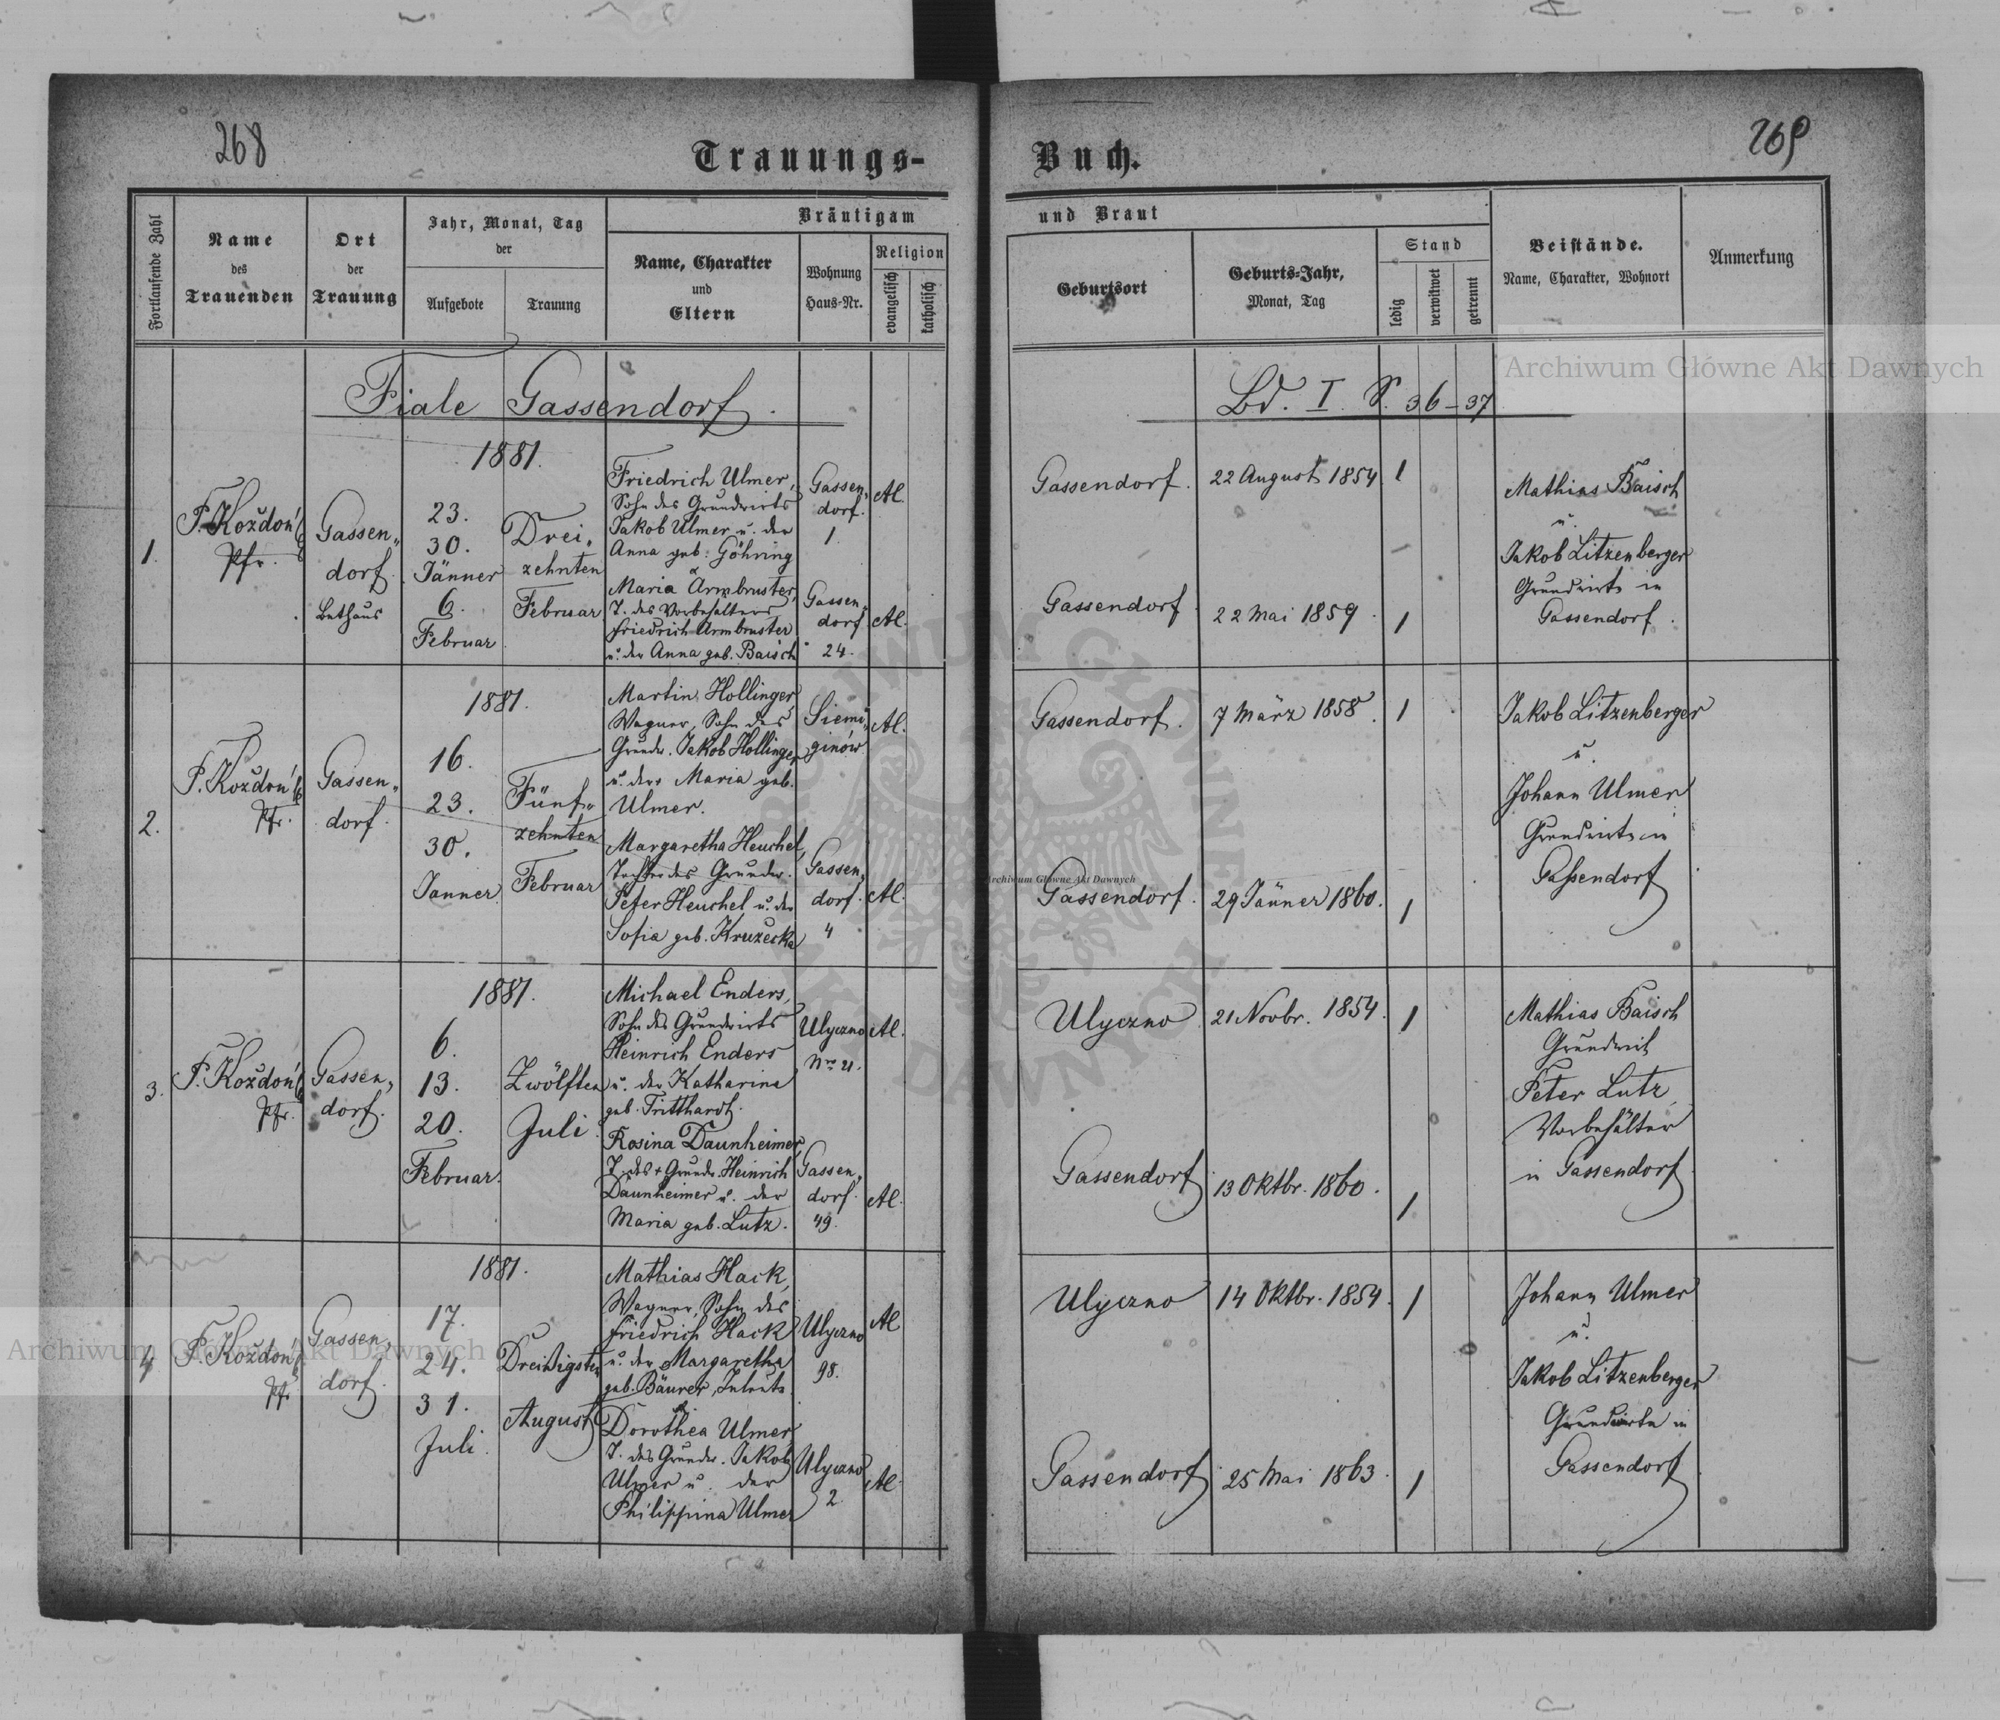 268
269
Trauungs-Buch.
Fortlaufende Zahl
Name
des
Trauenden
Ort
der
Trauung
Jahr, Monat, Tag
der
Aufgebote
Trauung
Bräutigam
und Braut
Name, Charakter
und
Eltern
Wohnung
Haus-Nr.
Religion
evangelisch
katholisch
Geburtsort
Geburts-Jahr,
Monat, Tag
Stand
ledig
verwitwet
getrennt
Beistände.
Name, Charakter, Wohnort
Anmerkung
Archiwum Główne Akt Dawnych
Fiale Gassendorf.
Bd. I S. 36-37
1.
P. Kożdoń
Pfr.
Gassen„
dorf.
Bethaus
1881.
23.
30.
Jänner
6.
Februar
Drei„
zehnten
Februar
Friedrich Ulmer,
Sohn des Grundwirts
Jakob Ulmer u. der
Anna geb: Göhring
Gassen„
dorf.
1.
Al.
Gassendorf.
22 August 1854
1
Maria Armbruster,
T. des Vorbehälters
Friedrich Armbruster
u. der Anna geb. Baisch
Gassen„
dorf
24.
Al.
Gassendorf
22 Mai 1859.
1
Mathias Baisch
u.
Jakob Litzenberger
Grundwirte in
Gassendorf.
2.
P. Kożdoń
Pfr.
Gassen„
dorf.
1881.
16.
23.
30.
Janner
Fünf„
zehnten
Februar
Martin Hollinger,
Wagner, Sohn des
Grundw. Jakob Hollinger
u. der Maria geb.
Ulmer.
Siemi„
ginów
Al.
Gassendorf.
7 März 1858.
1
Margaretha Heuchel,
Tochter des Grundw.
Peter Heuchel u. der
Sofia geb. Kruzecka
Gassen„
dorf.
4
Al.
Archiwum Główne Akt Dawnych
Gassendorf.
29 Jänner 1860.
1
Jakob Litzenberger
u.
Johann Ulmer
Grundwirte in
Gassendorf
3.
P. Kożdoń
Pfr.
Gassen„
dorf.
1881.
6.
13.
20.
Februar.
Zwölften
Juli
Michael Enders,
Sohn des Grundwirts
Heinrich Enders
u. der Katharina
geb. Tritthardt.
Ulyczno
Nro 21.
Al.
Ulyczno
21 Novbr. 1854.
1
Rosina Daunheimer
T. des + Grundw. Heinrich
Daunheimer u. der
Maria geb. Lutz.
Gassen„
dorf.
49.
Al.
Gassendorf
13 Oktbr. 1860.
1
Mathias Baisch
Grundwirt
Peter Lutz,
Vorbehälter
in Gassendorf
4.
P. Kożdoń
Pfr
Gassen„
dorf.
1881.
17.
24.
31.
Juli.
Dreißigsten
August
Mathias Hack,
Wagner, Sohn des
Friedrich Hack
u. der Margaretha
geb. Bäurer,
Ulyczno
98.
Al
Ulyczno
14 Oktbr. 1854.
1
Dorothea Ulmer
T. des Grundw. Jakob
Ulmer u. der
Philippina Ulmer
Ulyczno
2.
Al.
Gassendorf
25 Mai 1863.
1
Johann Ulmer
u.
Jakob Litzenberger
Grundwirte in
Gassendorf
Archiwum Główne Akt Dawnych
ARCHIWUM GŁÓWNE AKT DAWNYCH